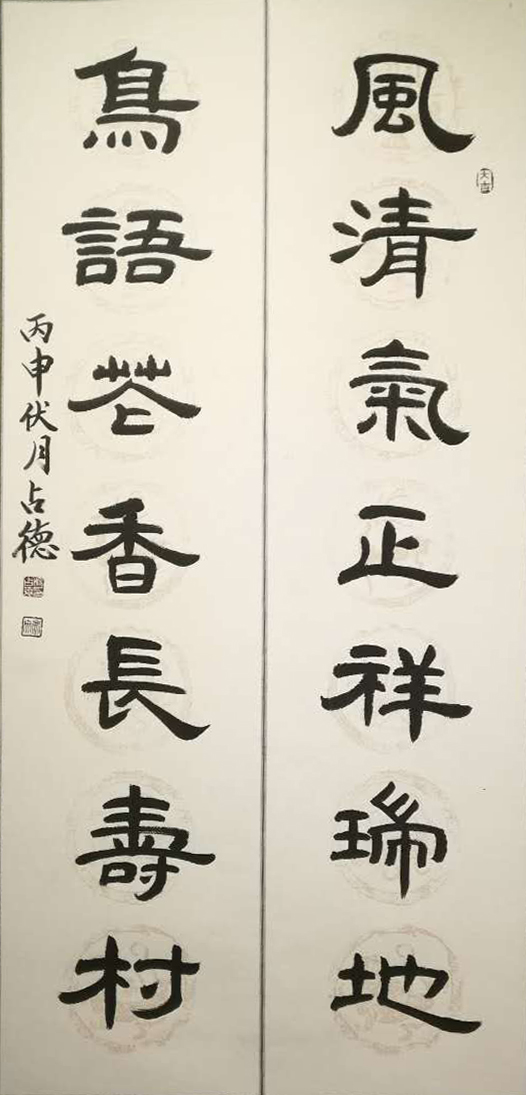 風清氣正祥瑞地
鳥語花香長壽村
丙申伏月占德